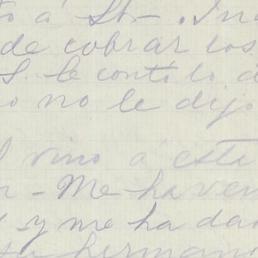 to á St- . In
de cobrar los
S. le contó lo d
o no le dijo
l vino á esta
n - Me ha ven
y me ha da
su hermano